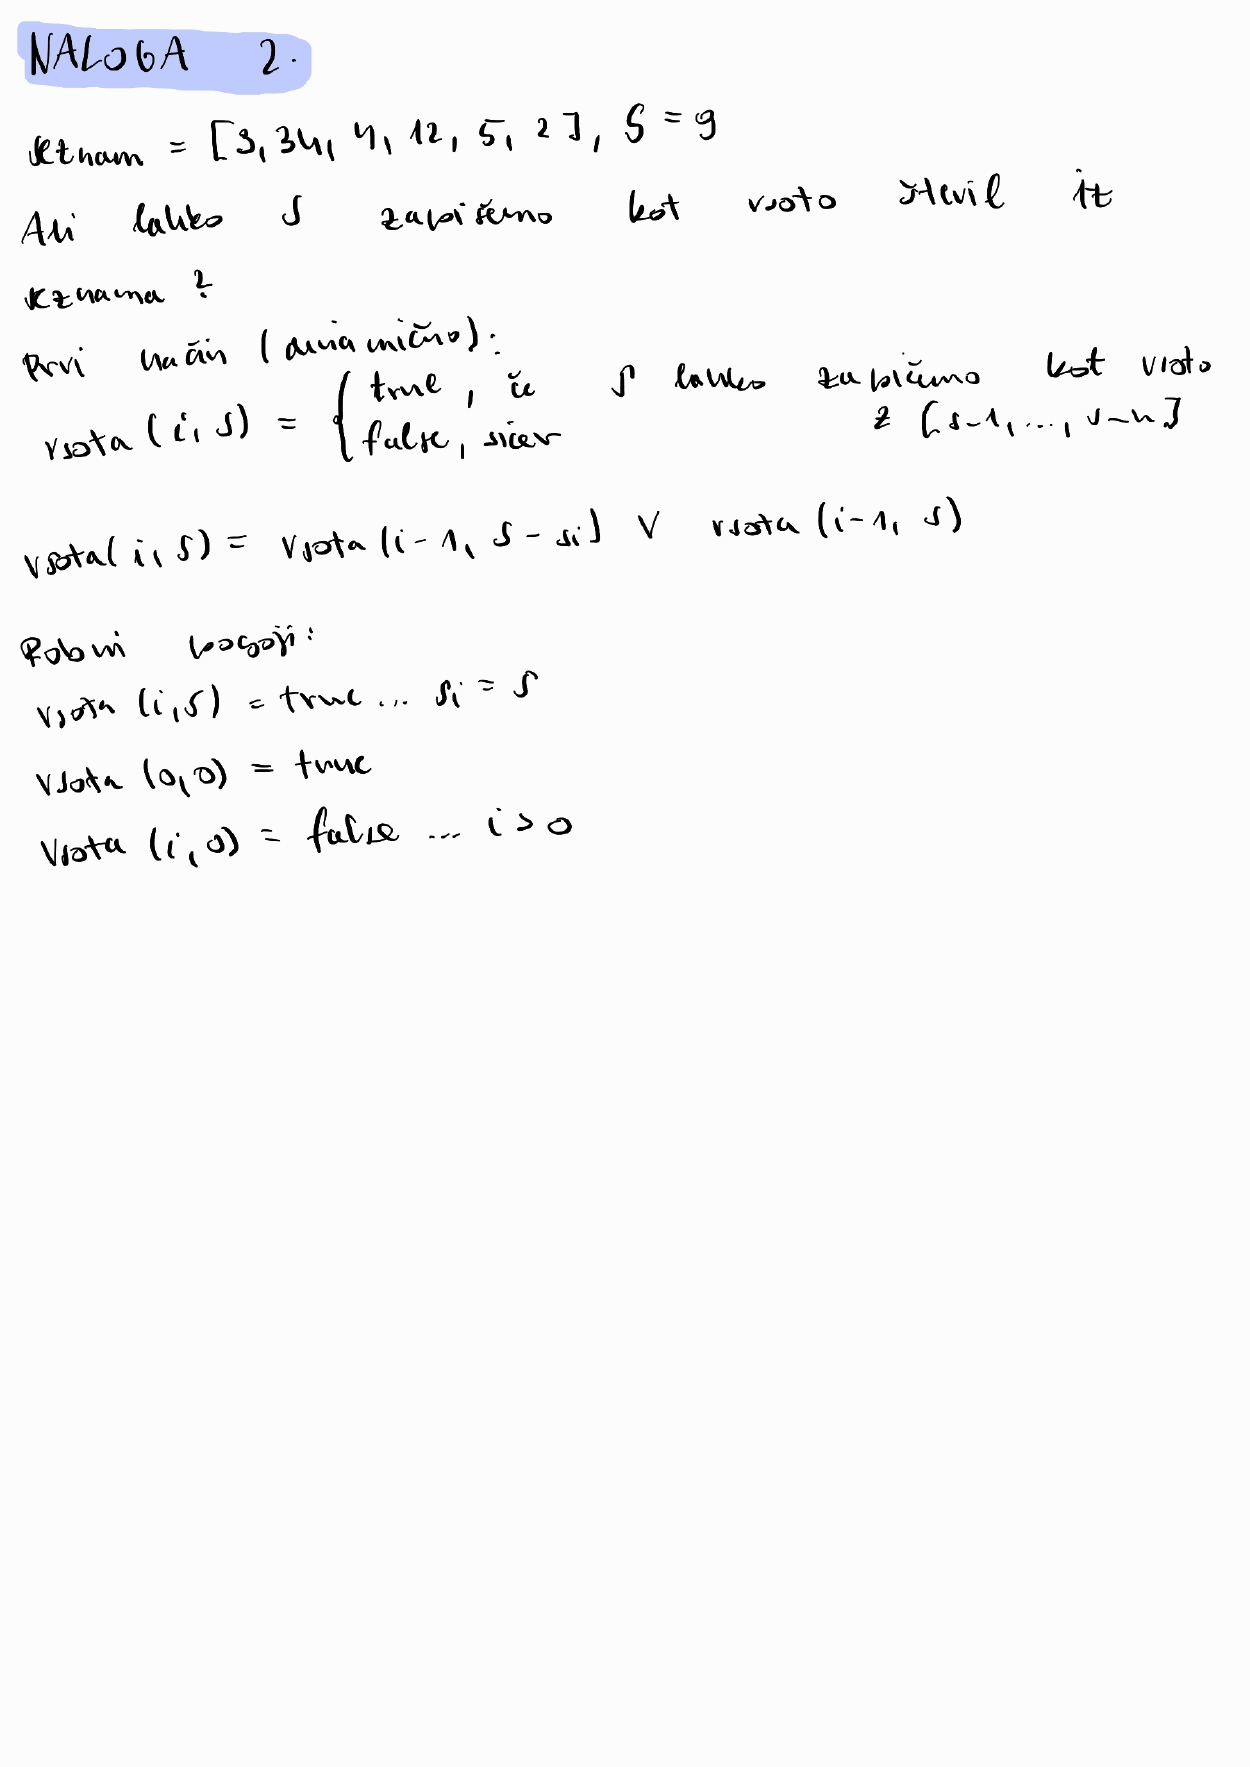 NALOGA 2.
seznam = [3, 34, 4, 12, 5, 2], S = 9
Ali lahko S zapišemo kot vsoto števil iz
seznama?
Prvi način (dinamično):
vsota(i, S) = { true, če S lahko zapišemo kot vsoto
z [s-1, ..., s-n]
false, sicer
vsota(i, S) = vsota(i-1, S - si) V vsota(i-1, S)
Robni pogoji:
vsota(i, S) = true ... si = S
vsota(0, 0) = true
vsota(i, 0) = false ... i > 0